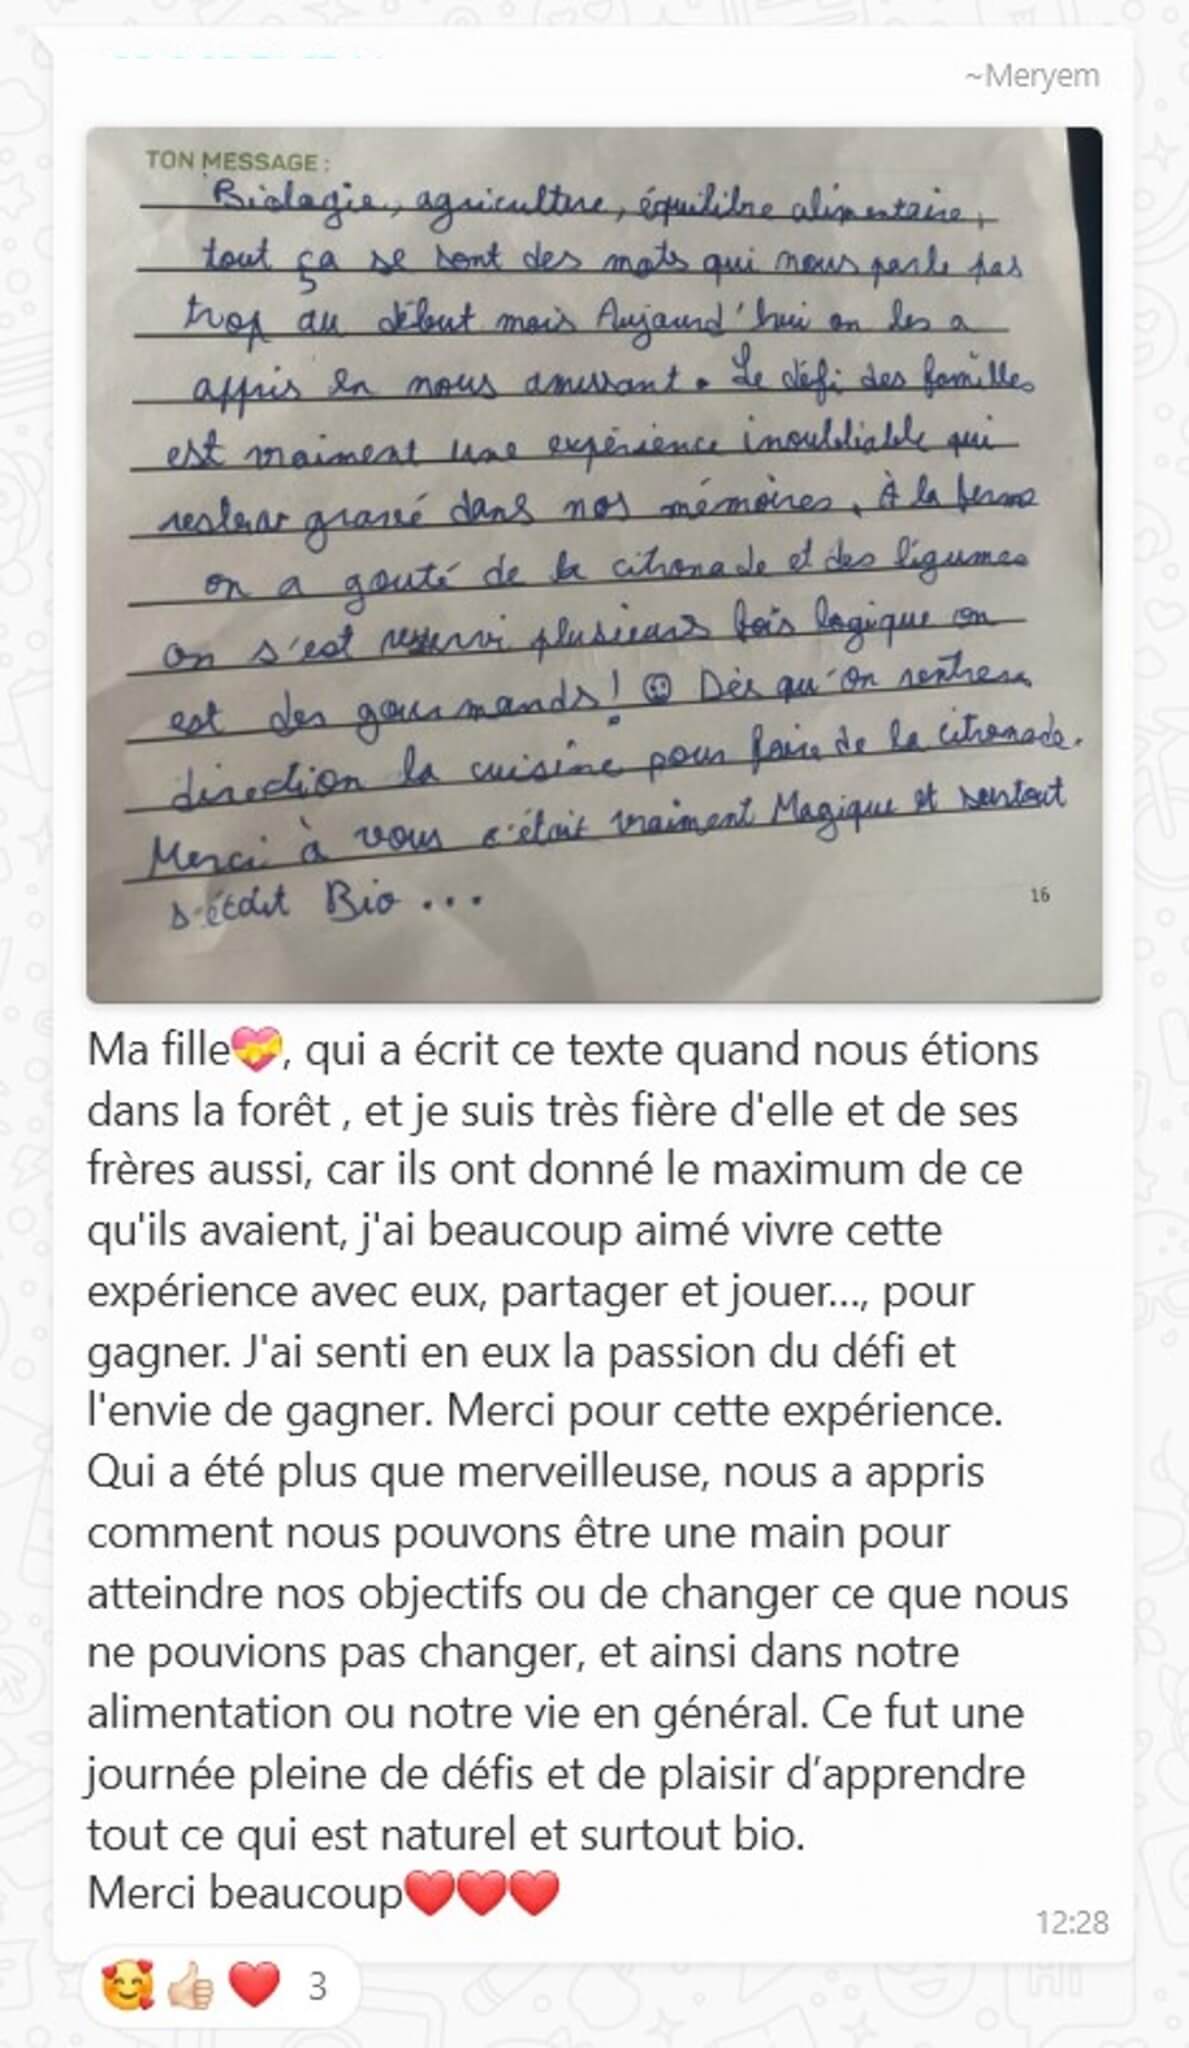 ~Meryem
TON MESSAGE :
Biologie, agriculture, équilibre alimentaire,
tout ça se sont des mots qui nous parle pas
trop au début mais Aujourd'hui on les a
appris en nous amusant. Le défi des familles
est vraiment une expérience inoubliable qui
restera gravé dans nos mémoires. À la ferme
on a gouté de la citronade et des légumes
on s'est resservi plusieurs fois logique on
est des gourmands! 😊 Dès qu'on rentrera
direction la cuisine pour faire de la citronade.
Merci à vous c'était vraiment Magique et surtout
s'était Bio...
16
Ma fille💝, qui a écrit ce texte quand nous étions
dans la forêt , et je suis très fière d'elle et de ses
frères aussi, car ils ont donné le maximum de ce
qu'ils avaient, j'ai beaucoup aimé vivre cette
expérience avec eux, partager et jouer..., pour
gagner. J'ai senti en eux la passion du défi et
l'envie de gagner. Merci pour cette expérience.
Qui a été plus que merveilleuse, nous a appris
comment nous pouvons être une main pour
atteindre nos objectifs ou de changer ce que nous
ne pouvions pas changer, et ainsi dans notre
alimentation ou notre vie en général. Ce fut une
journée pleine de défis et de plaisir d’apprendre
tout ce qui est naturel et surtout bio.
Merci beaucoup❤️❤️❤️
12:28
🥰👍🏻❤️ 3